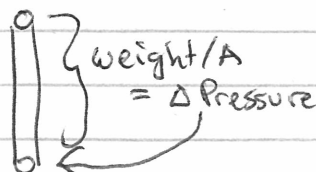 weight/A
= Δ Pressure